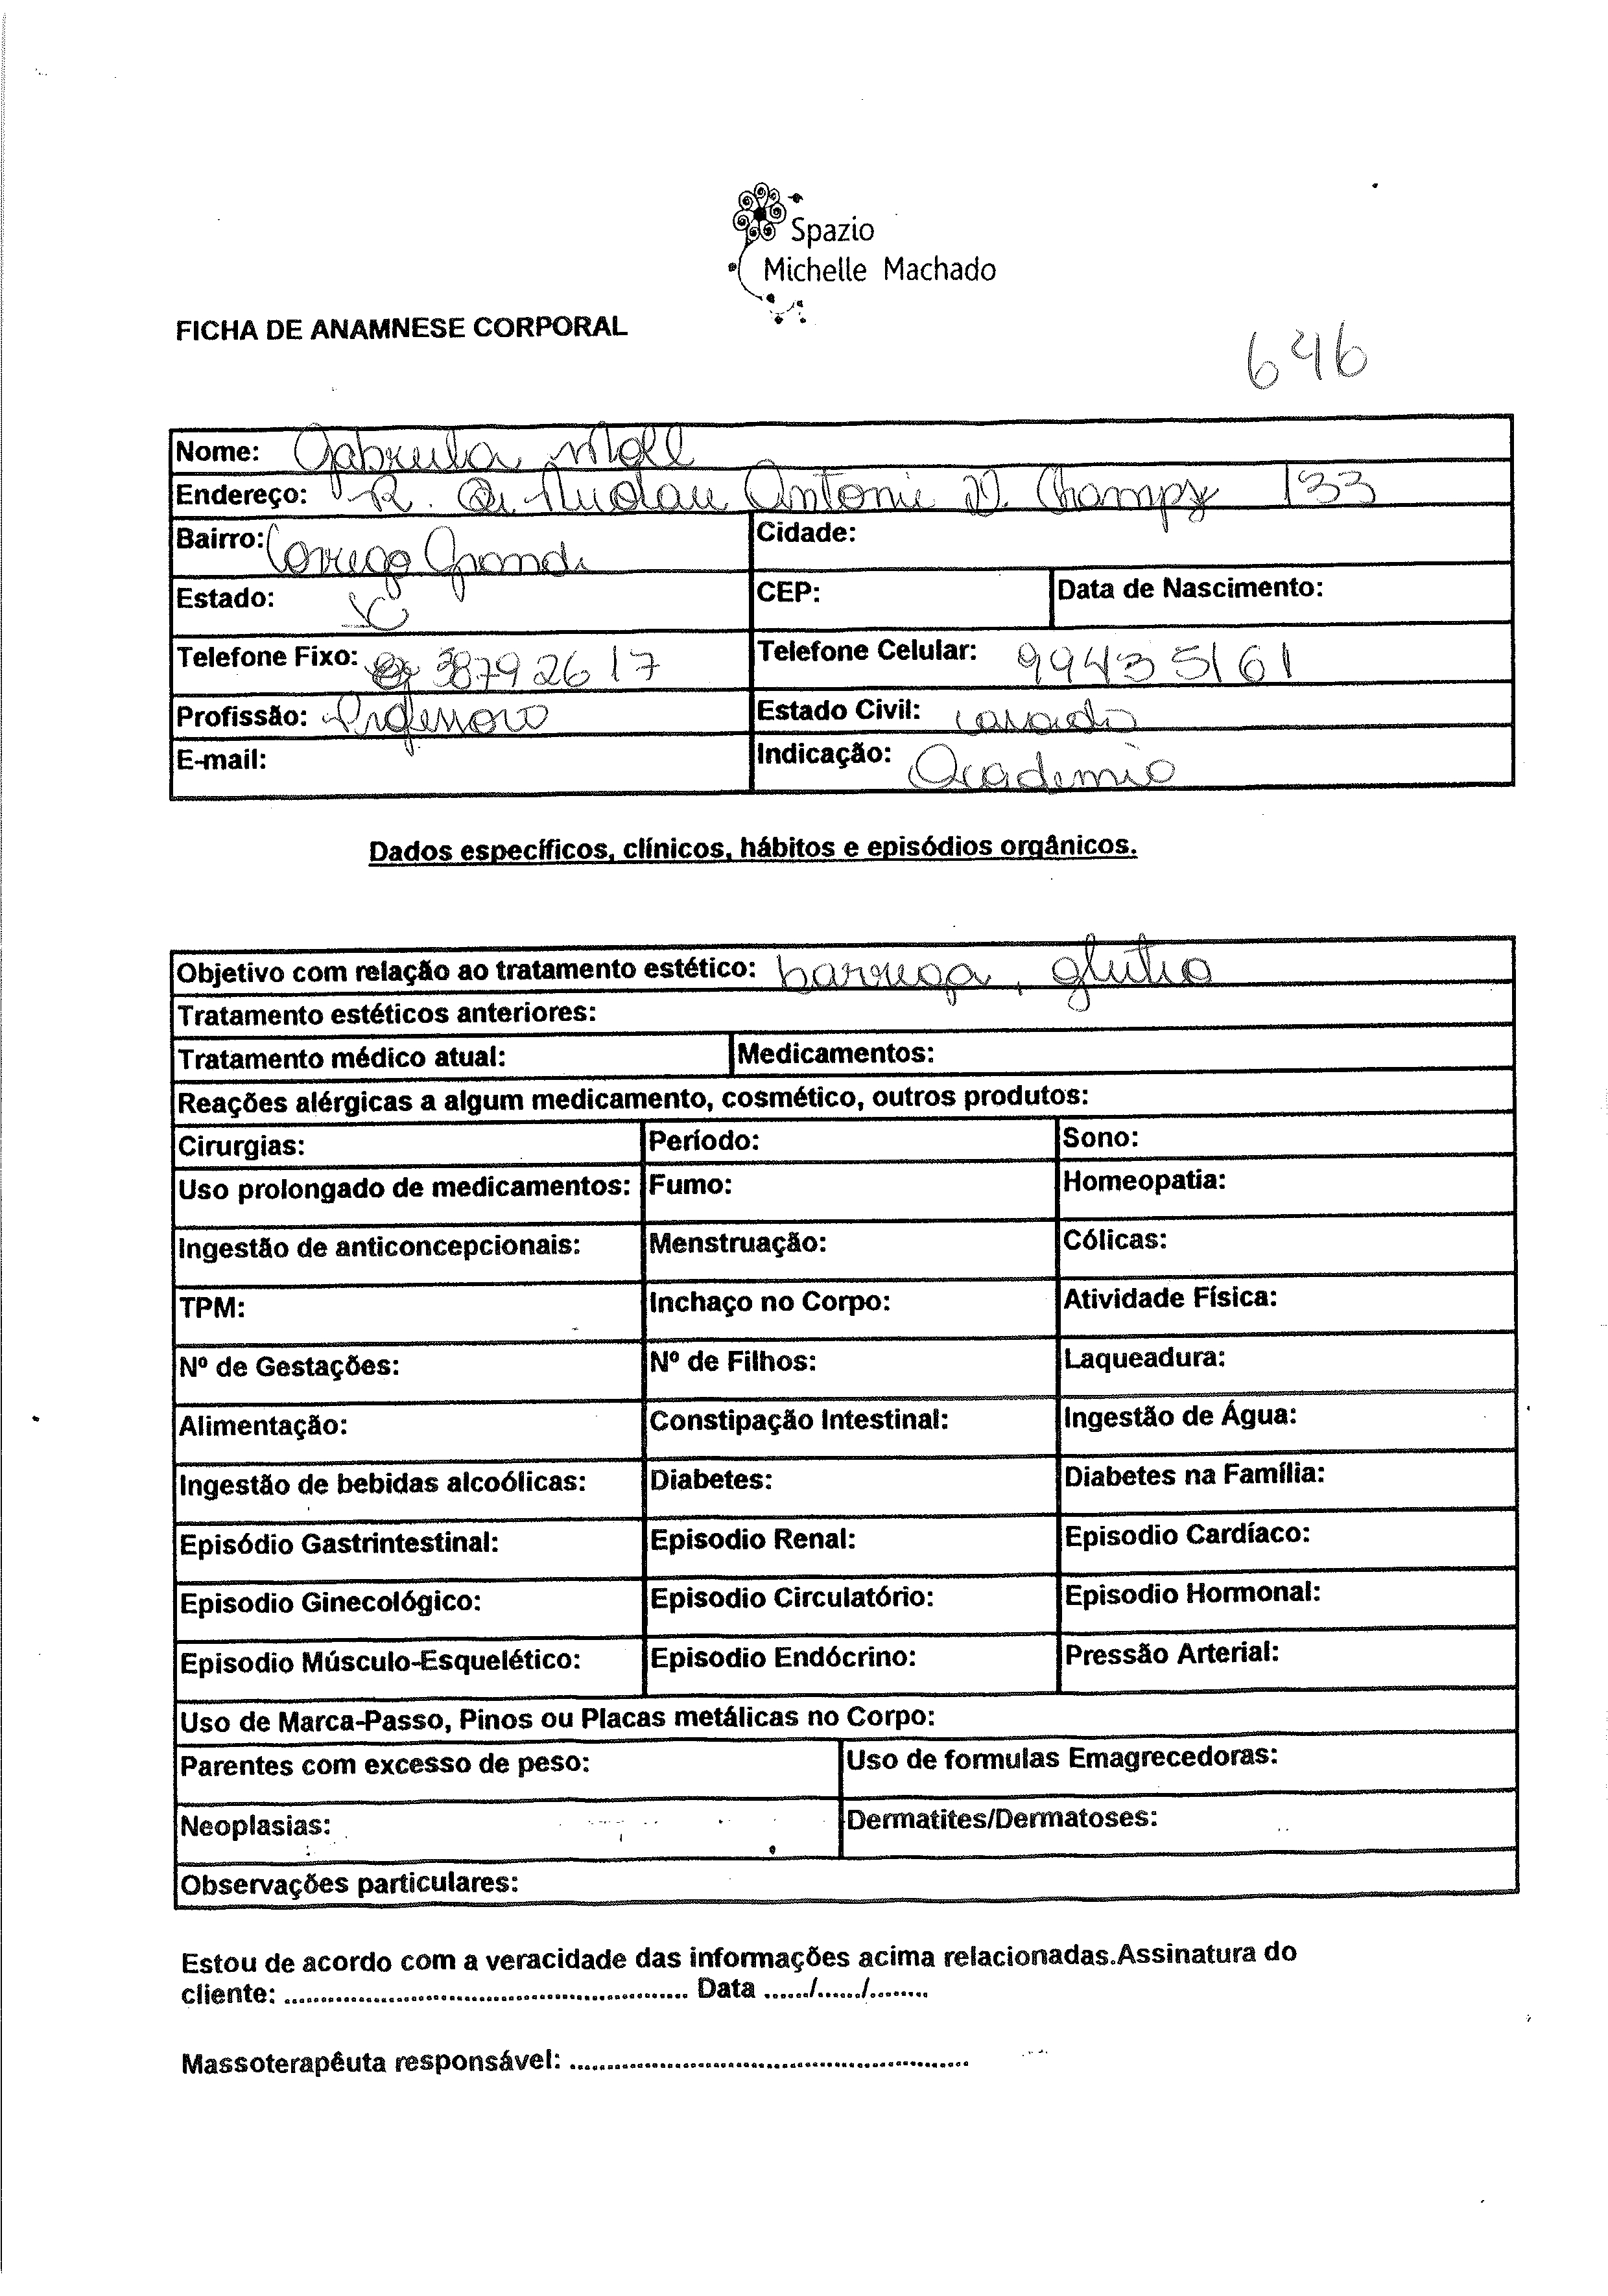 Spazio
Michelle Machado
FICHA DE ANAMNESE CORPORAL
646
Nome: Gabriela Moll
Endereço: R. Antonie D. Champy 133
Bairro: Corrego Grande Cidade:
Estado: SC CEP: Data de Nascimento:
Telefone Fixo: 38792617 Telefone Celular: 99435161
Profissão: Professora Estado Civil: casada
E-mail: Indicação: Academia
Dados específicos, clínicos, hábitos e episódios orgânicos.
Objetivo com relação ao tratamento estético: barriga, gluteo
Tratamento estéticos anteriores:
Tratamento médico atual: Medicamentos:
Reações alérgicas a algum medicamento, cosmético, outros produtos:
Cirurgias: Período: Sono:
Uso prolongado de medicamentos: Fumo: Homeopatia:
Ingestão de anticoncepcionais: Menstruação: Cólicas:
TPM: Inchaço no Corpo: Atividade Física:
Nº de Gestações: Nº de Filhos: Laqueadura:
Alimentação: Constipação Intestinal: Ingestão de Água:
Ingestão de bebidas alcoólicas: Diabetes: Diabetes na Família:
Episódio Gastrintestinal: Episodio Renal: Episodio Cardíaco:
Episodio Ginecológico: Episodio Circulatório: Episodio Hormonal:
Episodio Músculo-Esquelético: Episodio Endócrino: Pressão Arterial:
Uso de Marca-Passo, Pinos ou Placas metálicas no Corpo:
Parentes com excesso de peso: Uso de formulas Emagrecedoras:
Neoplasias: Dermatites/Dermatoses:
Observações particulares:
Estou de acordo com a veracidade das informações acima relacionadas.Assinatura do
cliente: .................................................... Data ....../....../........
Massoterapêuta responsável: ....................................................